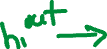 h₁ᵒᵘᵗ →